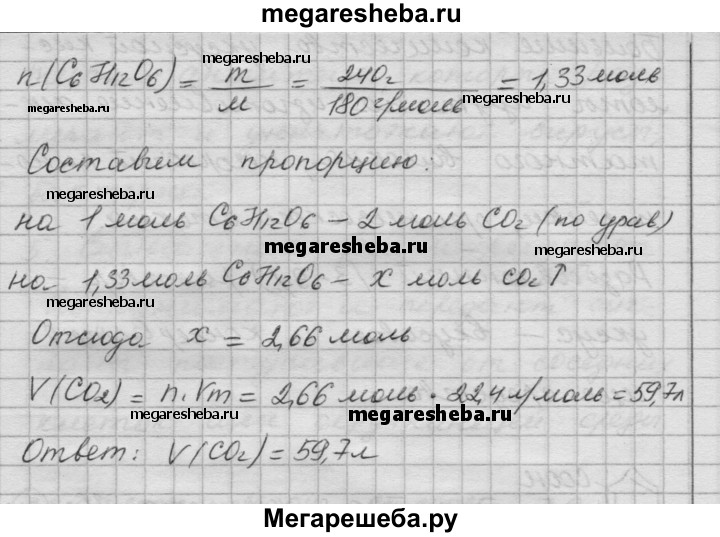 megaresheba.ru
megaresheba.ru
n(C6H12O6) = m/м = 240г/180г/моль = 1,33 моль
megaresheba.ru megaresheba.ru
Составим пропорцию:
megaresheba.ru
на 1 моль C6H12O6 – 2 моль CO2 (по урав)
megaresheba.ru megaresheba.ru
на 1,33 моль C6H12O6 – x моль CO2↑
megaresheba.ru
Отсюда x = 2,66 моль
V(CO2) = n·Vm = 2,66 моль · 22,4 л/моль = 59,7л
megaresheba.ru megaresheba.ru
Ответ: V(CO2) = 59,7л
Мегарешеба.ру